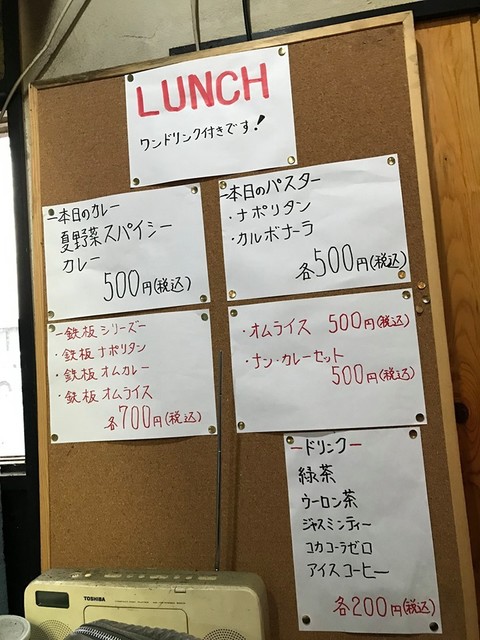 LUNCH
ワンドリンク付きです!
ー本日のカレー
夏野菜スパイシー
カレー
500円(税込)
ー本日のパスター
・ナポリタン
・カルボナーラ
各500円(税込)
ー鉄板シリーズー
・鉄板ナポリタン
・鉄板オムカレー
・鉄板オムライス
各700円(税込)
・オムライス 500円(税込)
・ナン・カレーセット
500円(税込)
ードリンクー
緑茶
ウーロン茶
ジャスミンティー
コカコーラゼロ
アイスコーヒー
各200円(税込)
TOSHIBA